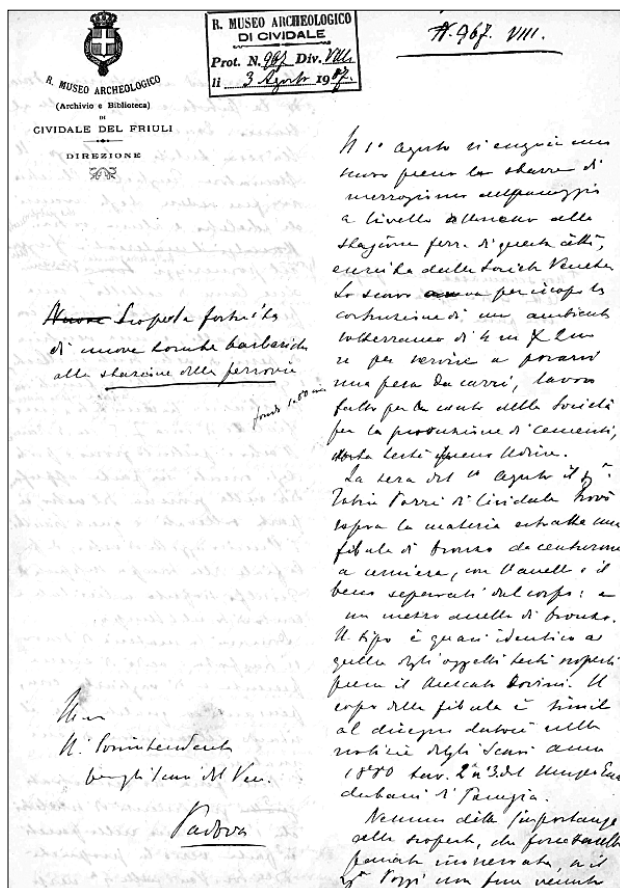 R. MUSEO ARCHEOLOGICO
(Archivio e Biblioteca)
DI
CIVIDALE DEL FRIULI
DIREZIONE
R. MUSEO ARCHEOLOGICO
DI CIVIDALE
Prot. N. 967 Div. VIII
li 3 Agosto 1907.
N. 967. VIII.
Nuove Scoperta fortuita
di nuove tombe barbariche
alla stazione della ferrovia
Padova
Il 1° agosto si eseguì uno
scavo presso la sbarra di
mezzogiorno del passaggio
a livello attenente alla
stazione ferr. di questa città,
esercita dalla Società Veneta
Lo scavo per iscopo la
costruzione di un ambiente
sotterraneo di 4 m X 2
re per servire a porarvi
una pesa da carri, lavoro
fatto per conto della Società
per la produzione di cementi,
testè presso Udine.
La sera del 1° agosto il
di Cividale trovò
sopra la materia estratta una
fibula di bronzo da cinturone
a cerniera, con l'anello e il
becco separati dal corpo: e
un mezzo anello di bronzo.
Il tipo è quasi identico a
quello degli oggetti testè scoperti
presso il Il
corpo della fibula è simile
al disegno datoci nelle
notizie degli Scavi anno
1880 tav. 2 n 3 del
di Perugia.
Nessuno della importanza
della scoperta, che
inosservata, se il
non fosse venuto